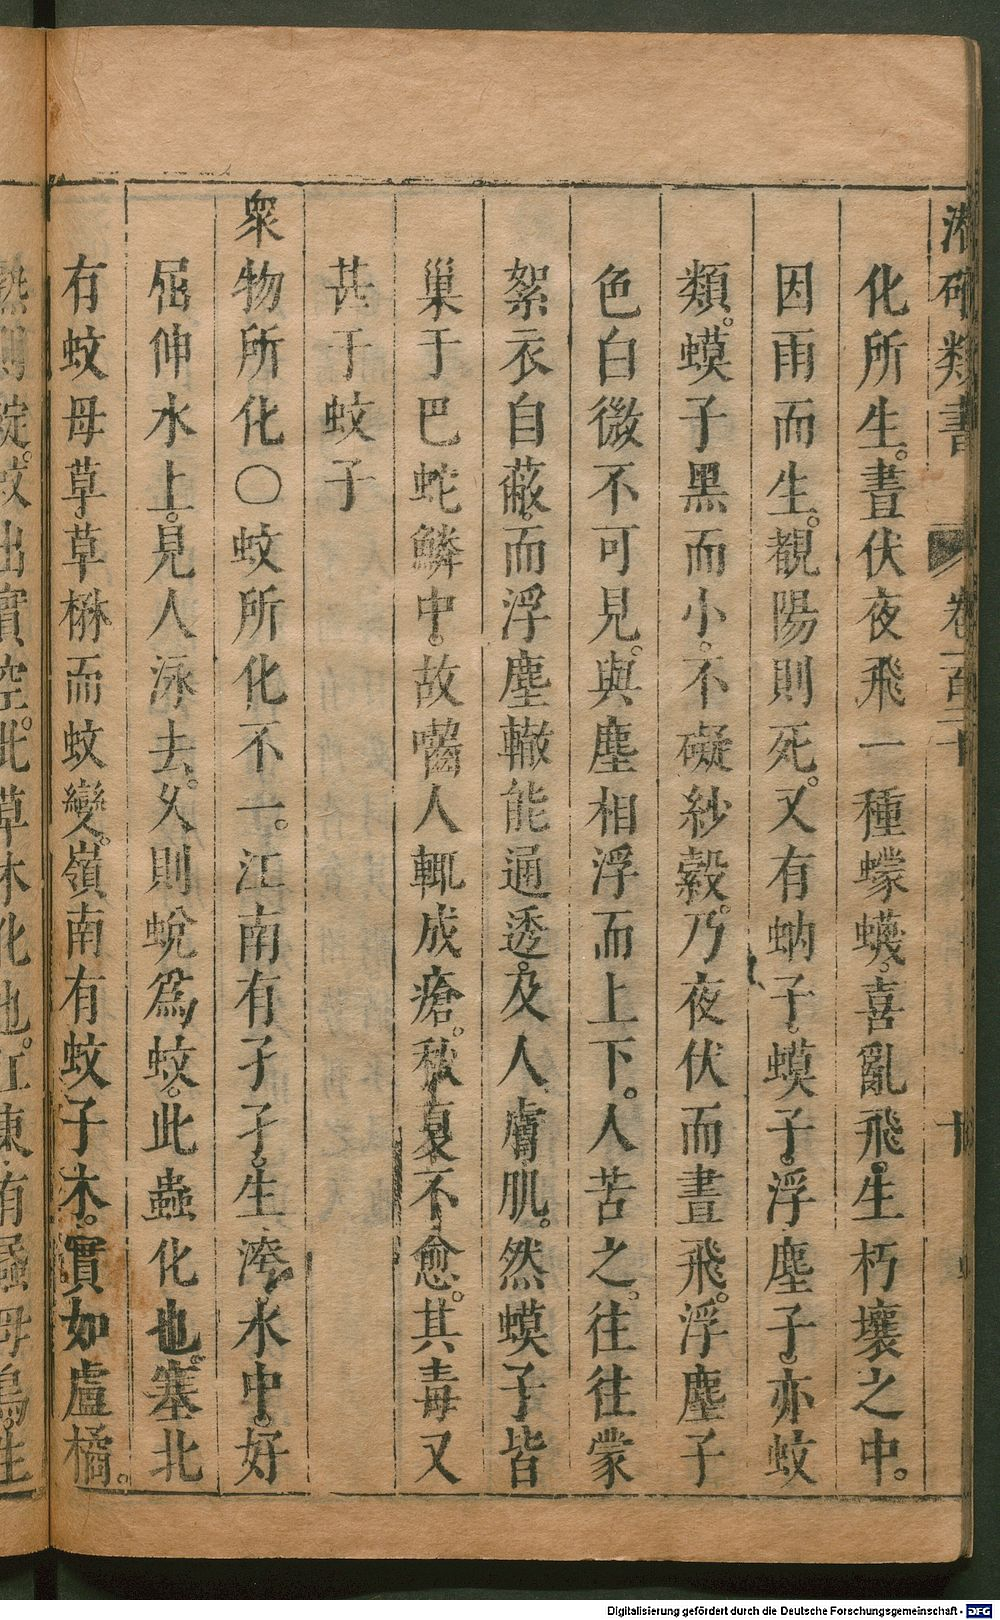 潛確類書 卷一百二十 十
化所生。晝伏夜飛一種蠓蠛。喜亂飛。生朽壤之中。
因雨而生。覩陽則死。又有蚋子。蟆子。浮塵子。亦蚊
類。蟆子黑而小。不礙紗縠。乃夜伏而晝飛。浮塵子
色白微不可見。與塵相浮而上下。人苦之。往往蒙
絮衣自蔽。而浮塵轍能通透。及人膚肌。然蟆子皆
巢于巴蛇鱗中。故噶人輒成瘡。秋夏不愈。其毒又
甚于蚊子
衆物所化〇蚊所化不一。江南有孑孑。生洿水中。好
屈伸水上。見人泳去。久則蛻爲蚊。此蟲化也。塞北
有蚊母草。草楙而蚊變。嶺南有蚊子木。實如盧橘。
熟則綻。蚊出實空。此草木化也。江東有蟁母鳥。生
Digitalisierung gefördert durch die Deutsche Forschungsgemeinschaft - DFG